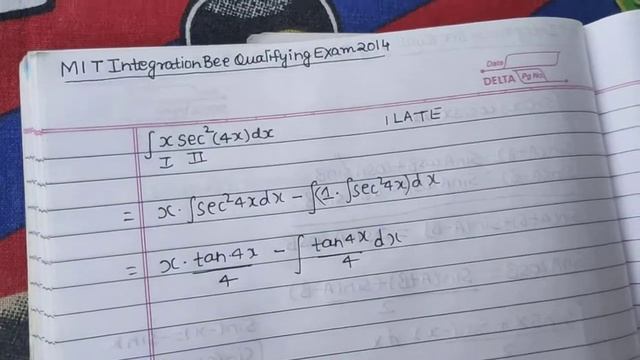 MIT Integration Bee Qualifying Exam 2014
Date
DELTA Pg No.
∫ x sec²(4x) dx
I II
ILATE
= x · ∫sec²4x dx − ∫(1 · ∫sec²4x) dx
= x · tan 4x/4 − ∫ tan 4x/4 dx